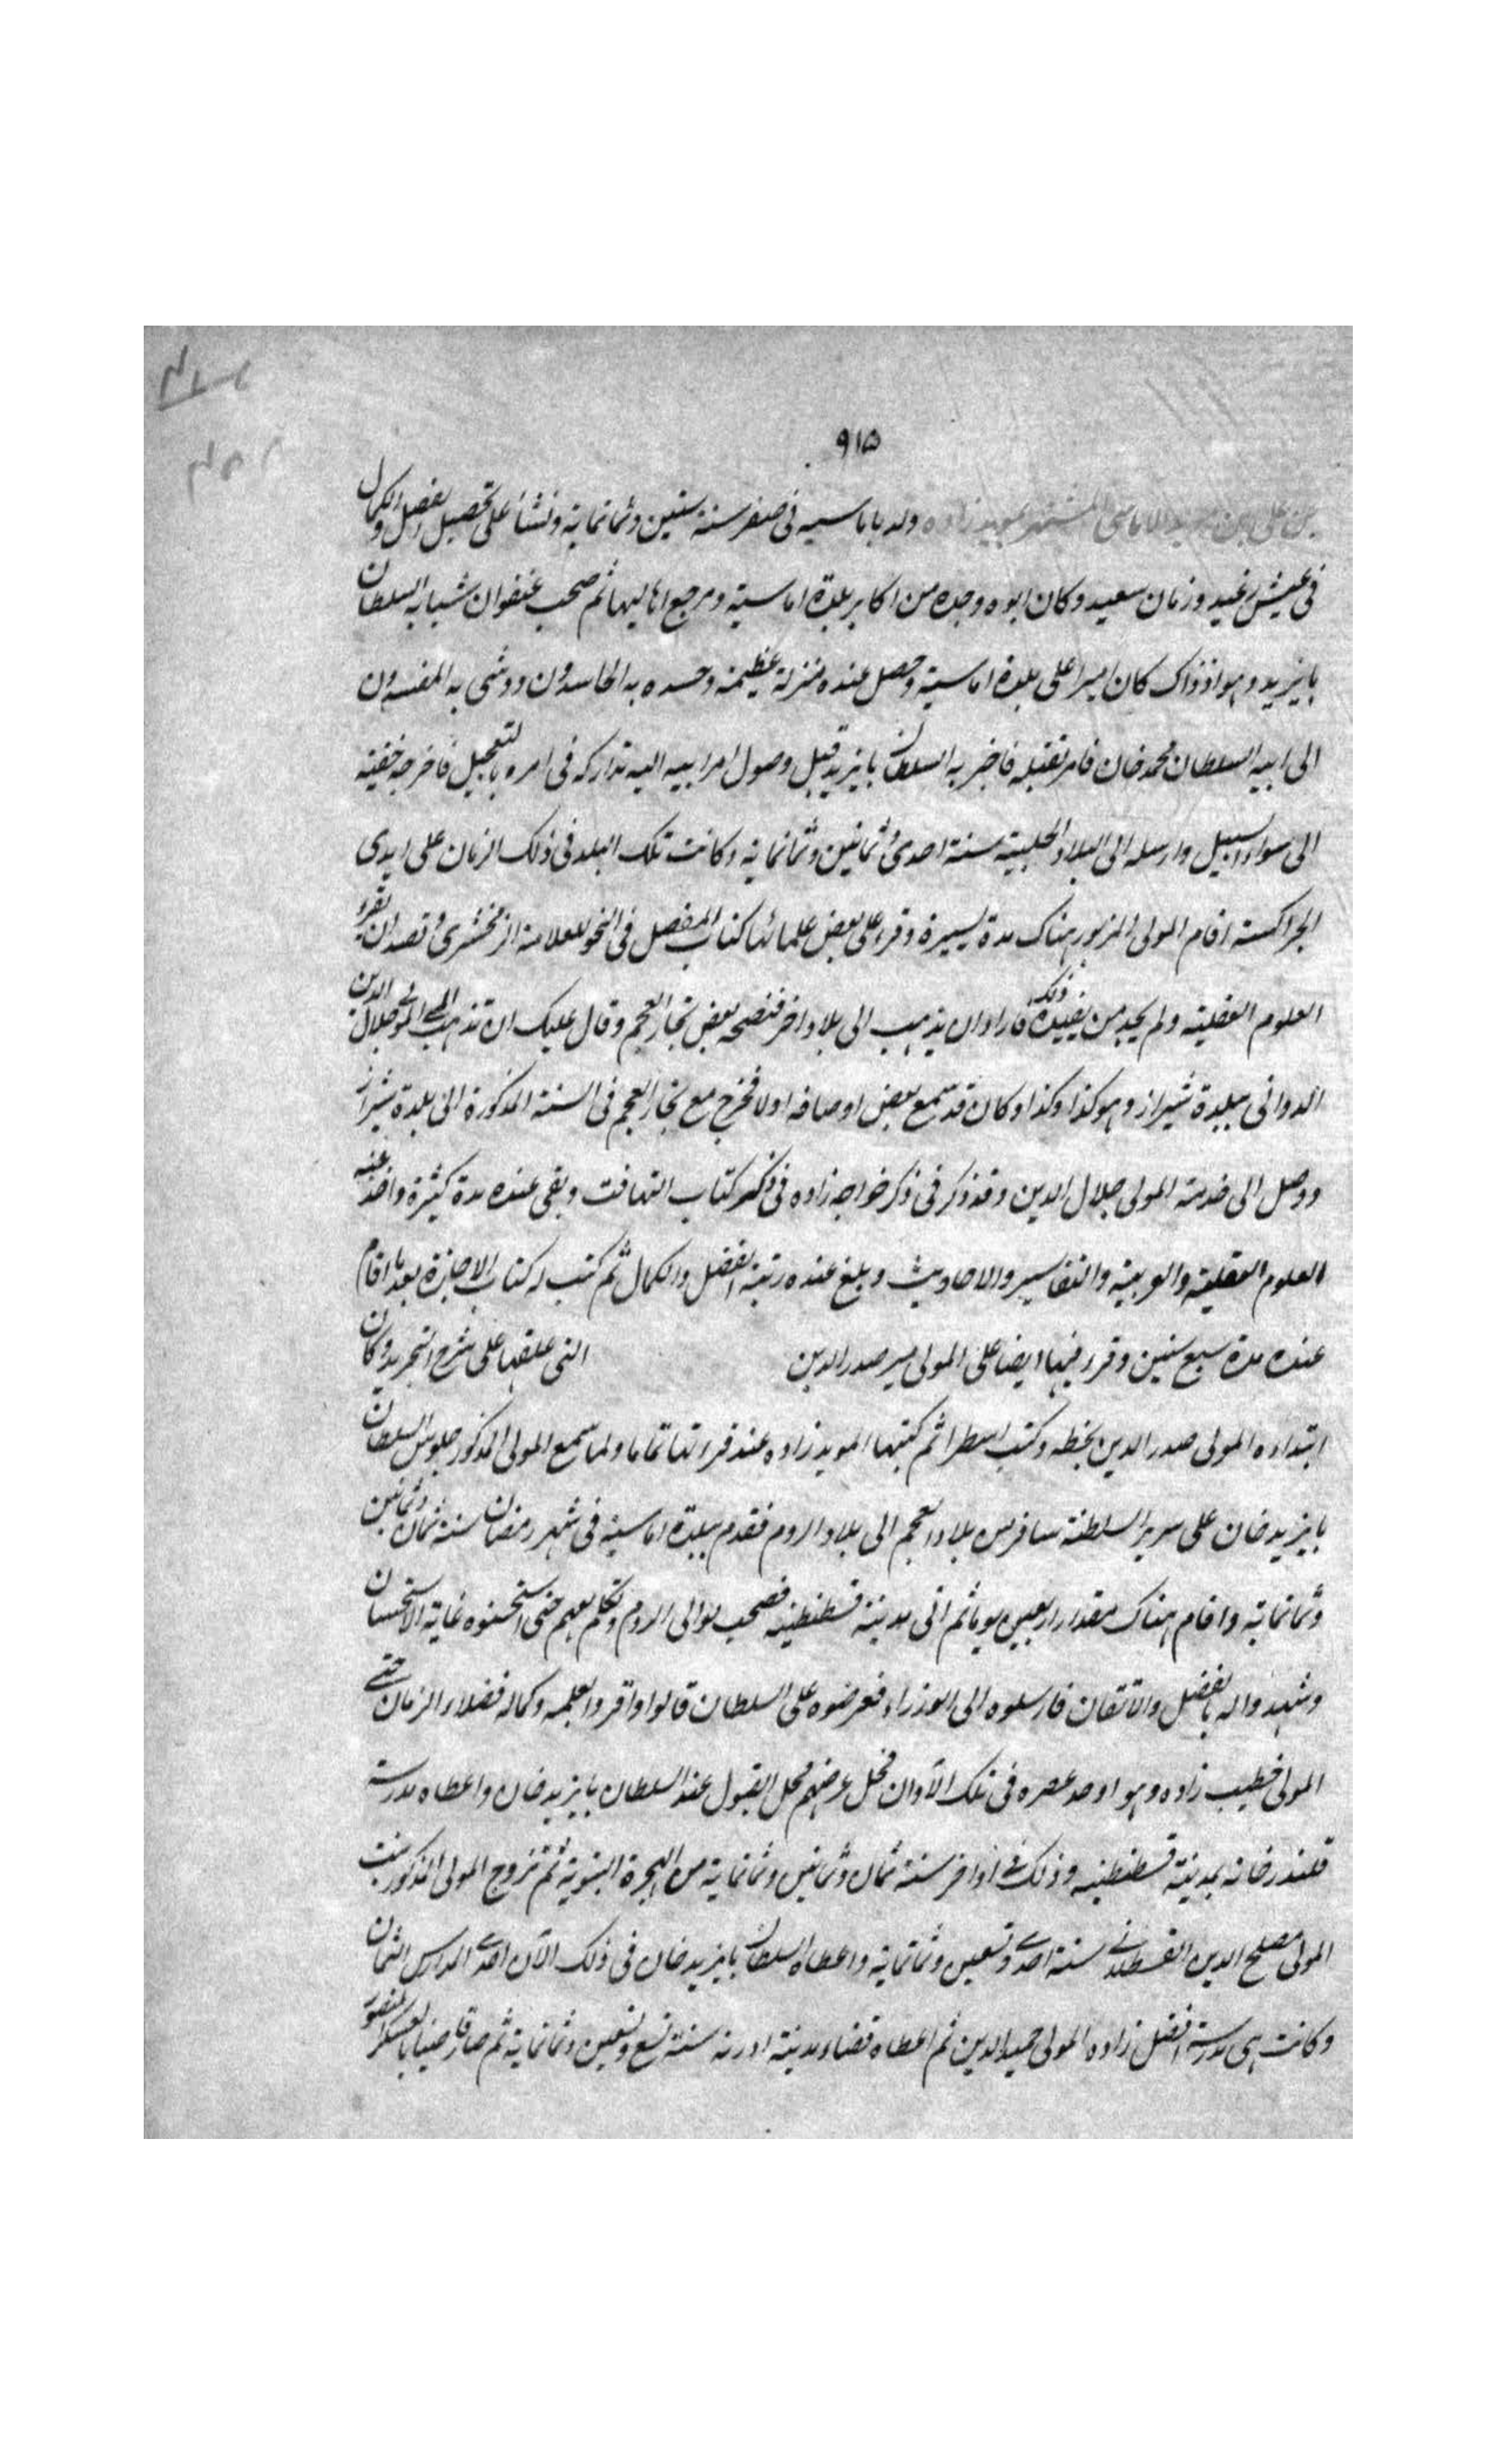 ٩١٥
بن على بن الاماسى المشتهر بمويد زاده ولد باماسيه فى صفر سنة ستين وثمانماية ونشا على تحصيل الفضل والكمال
فى عيش رغيد وزمان سعيد وكان ابوه وجده من اكابر بلدة اماسية ومرجع اهاليها ثم صحب عنفوان شبابه السلطان
بايزيد وهو اذ ذاك كان اميرا على بلدة اماسية وحصل عنده منزلة عظيمة وحسده به الحاسدون ووشى به المفسدون
الى ابيه السلطان محمد خان فامر بقتله فاخبر به السلطان بايزيد قبل وصول امر ابيه اليه تداركه فى امره بالتعجيل فاخرجه خفية
الى سواء السبيل وارسله الى البلاد الحلبية سنة احدى وثمانين وثمانماية وكانت تلك البلد فى ذلك الزمان على ايدى
الجراكسة اقام المولى المزبور هناك مدة يسيرة وقرء على بعض علمائها كتاب المفصل فى النحو للعلامة الزمخشرى وقصد ان يقرء
العلوم العقلية ولم يجد من يفيده ذلك فاراد ان يذهب الى بلاد اخر فنصحه بعض تجار العجم وقال عليك ان تذهب الى المولى جلال الدين
الدوانى ببلدة شيراز وهو كذا وكذا وكان قد سمع بعض اوصافه اولا فخرج مع تجار العجم فى السنة المذكورة الى بلدة شيراز
ووصل الى خدمة المولى جلال الدين وقد ذكر فى ذكر خواجه زاده فى ذكر كتاب التهافت وبقى عنده مدة كثيرة واخذ عنه
العلوم العقلية والعربية والتفاسير والاحاديث وبلغ عنده رتبة الفضل والكمال ثم كتب له كتاب الاجازة بعد ما اقام
عنده مدة سبع سنين وقرء فيها ايضا على المولى مير صدر الدين التى علقها على شرح التجريد وكان
ابتداءه المولى صدر الدين بخطه وكتب اسطرا ثم كتبها المويد زاده عند قراءتها تماما ولما سمع المولى المذكور جلوس السلطان
بايزيد خان على سرير السلطنة سافر من بلاد العجم الى بلاد الروم فقدم ببلدة اماسية فى شهر رمضان سنة ثمان وثمانين
وثمانماية واقام هناك مقدار اربعين يوما ثم اتى مدينة قسطنطينه فصحب موالى الروم وتكلم معهم حتى استحسنوه غاية الاستحسان
وشهدوا له بالفضل والاتقان فارسلوه الى الوزراء فعرضوه على السلطان قالوا واقروا بعلمه وكماله فضلاء الزمان حتى
المولى خطيب زاده وهو اوحد عصره فى تلك الآوان فحل عرضهم محل القبول عند السلطان بايزيد خان واعطاه مدرسة
قلندر خانه بمدينة قسطنطينه وذلك فى اواخر سنة ثمان وثمانين وثمانماية من الهجرة النبوية ثم تزوج المولى المذكور بنت
المولى مصلح الدين القسطلانى سنة احدى وتسعين وثمانماية واعطاه السلطان بايزيد خان فى ذلك الآن احدى المدارس الثمان
وكانت هى مدرسة افضل زاده المولى حميد الدين ثم اعطاه قضاء مدينة ادرنه سنة تسع وتسعين وثمانماية ثم صار قاضيا بالعسكر المنصور